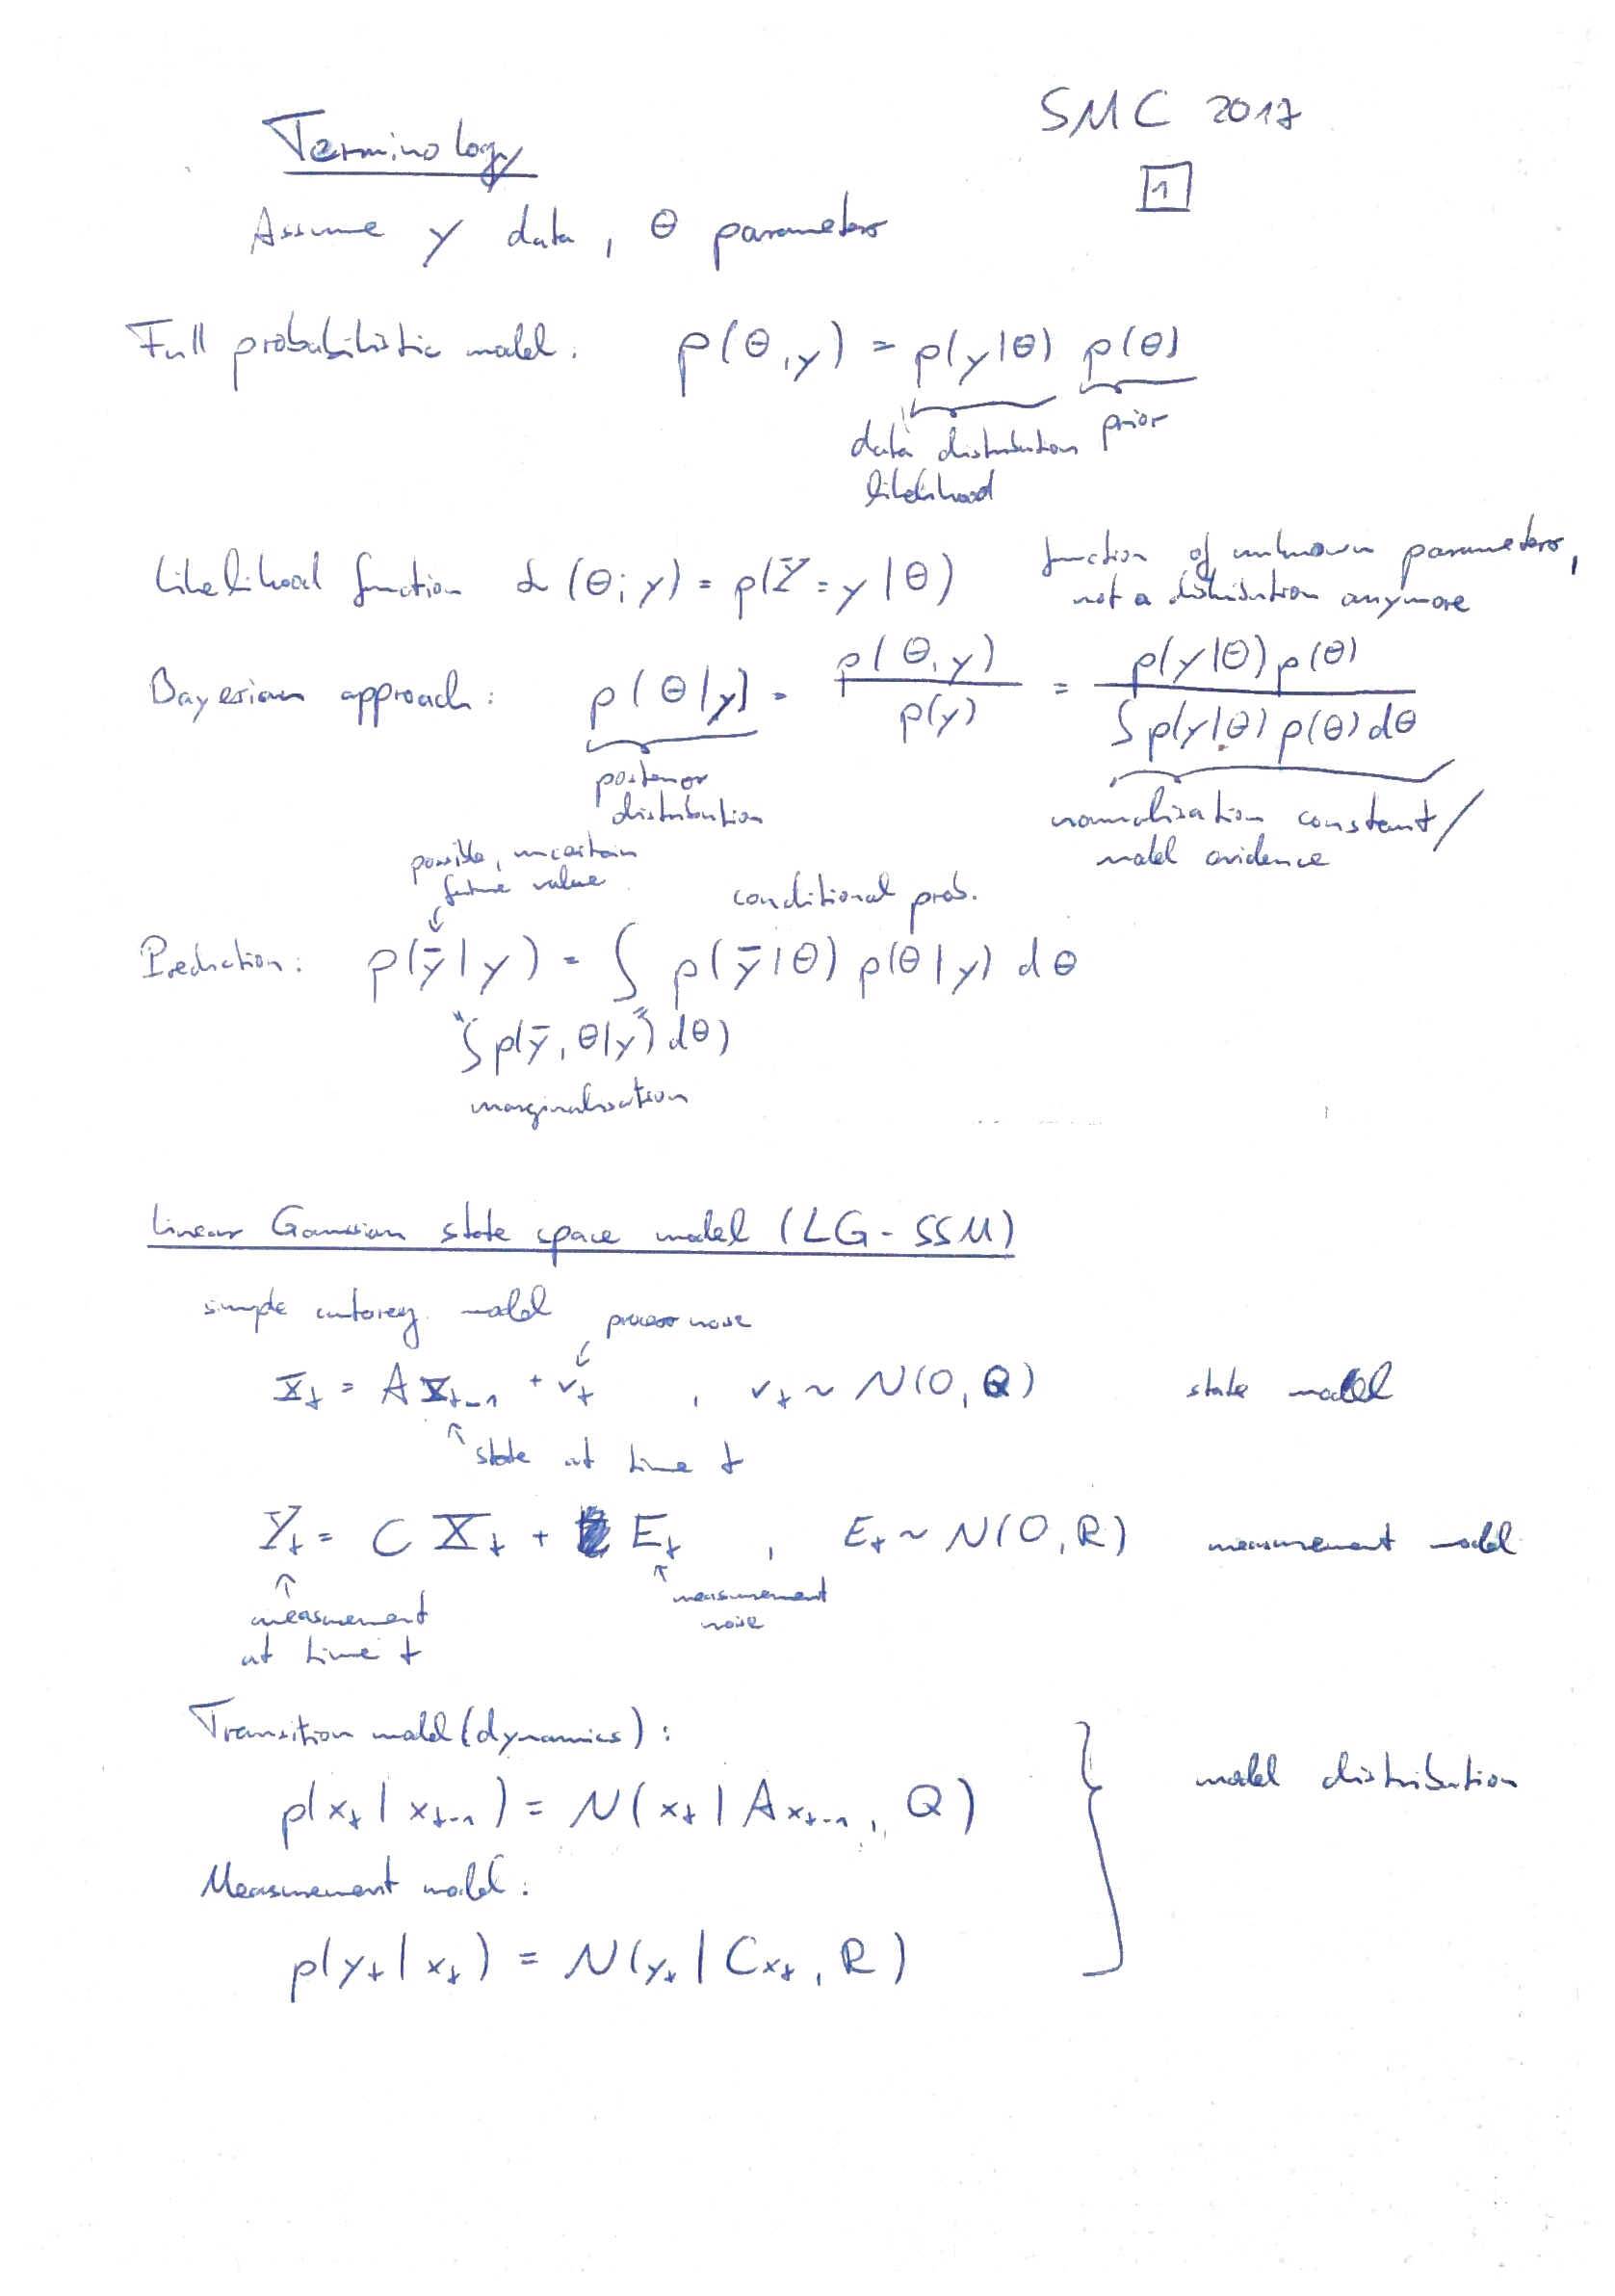 SMC 2017
1
Terminology
Assume y data, θ parameters
Full probabilistic model: p(θ,y) = p(y|θ) p(θ)
data distribution prior
likelihood
Likelihood function L(θ;y) = p(Y=y|θ) function of unknown parameters,
not a distribution anymore
Bayesian approach: p(θ|y) = p(θ,y)/p(y) = p(y|θ)p(θ) / ∫p(y|θ)p(θ)dθ
posterior
distribution
normalisation constant/
model evidence
possible, uncertain
future value
conditional prob.
Prediction: p(ȳ|y) = ∫ p(ȳ|θ) p(θ|y) dθ
∫p(ȳ,θ|y) dθ)
marginalisation
Linear Gaussian state space model (LG-SSM)
simple autoreg. model
process noise
X_t = A X_t-1 + v_t , v_t ~ N(0,Q) state model
state at time t
Y_t = C X_t + E_t , E_t ~ N(0,R) measurement model
measurement
at time t
measurement
noise
Transition model (dynamics):
p(x_t|x_t-1) = N(x_t|Ax_t-1, Q)
model distribution
Measurement model:
p(y_t|x_t) = N(y_t|Cx_t, R)